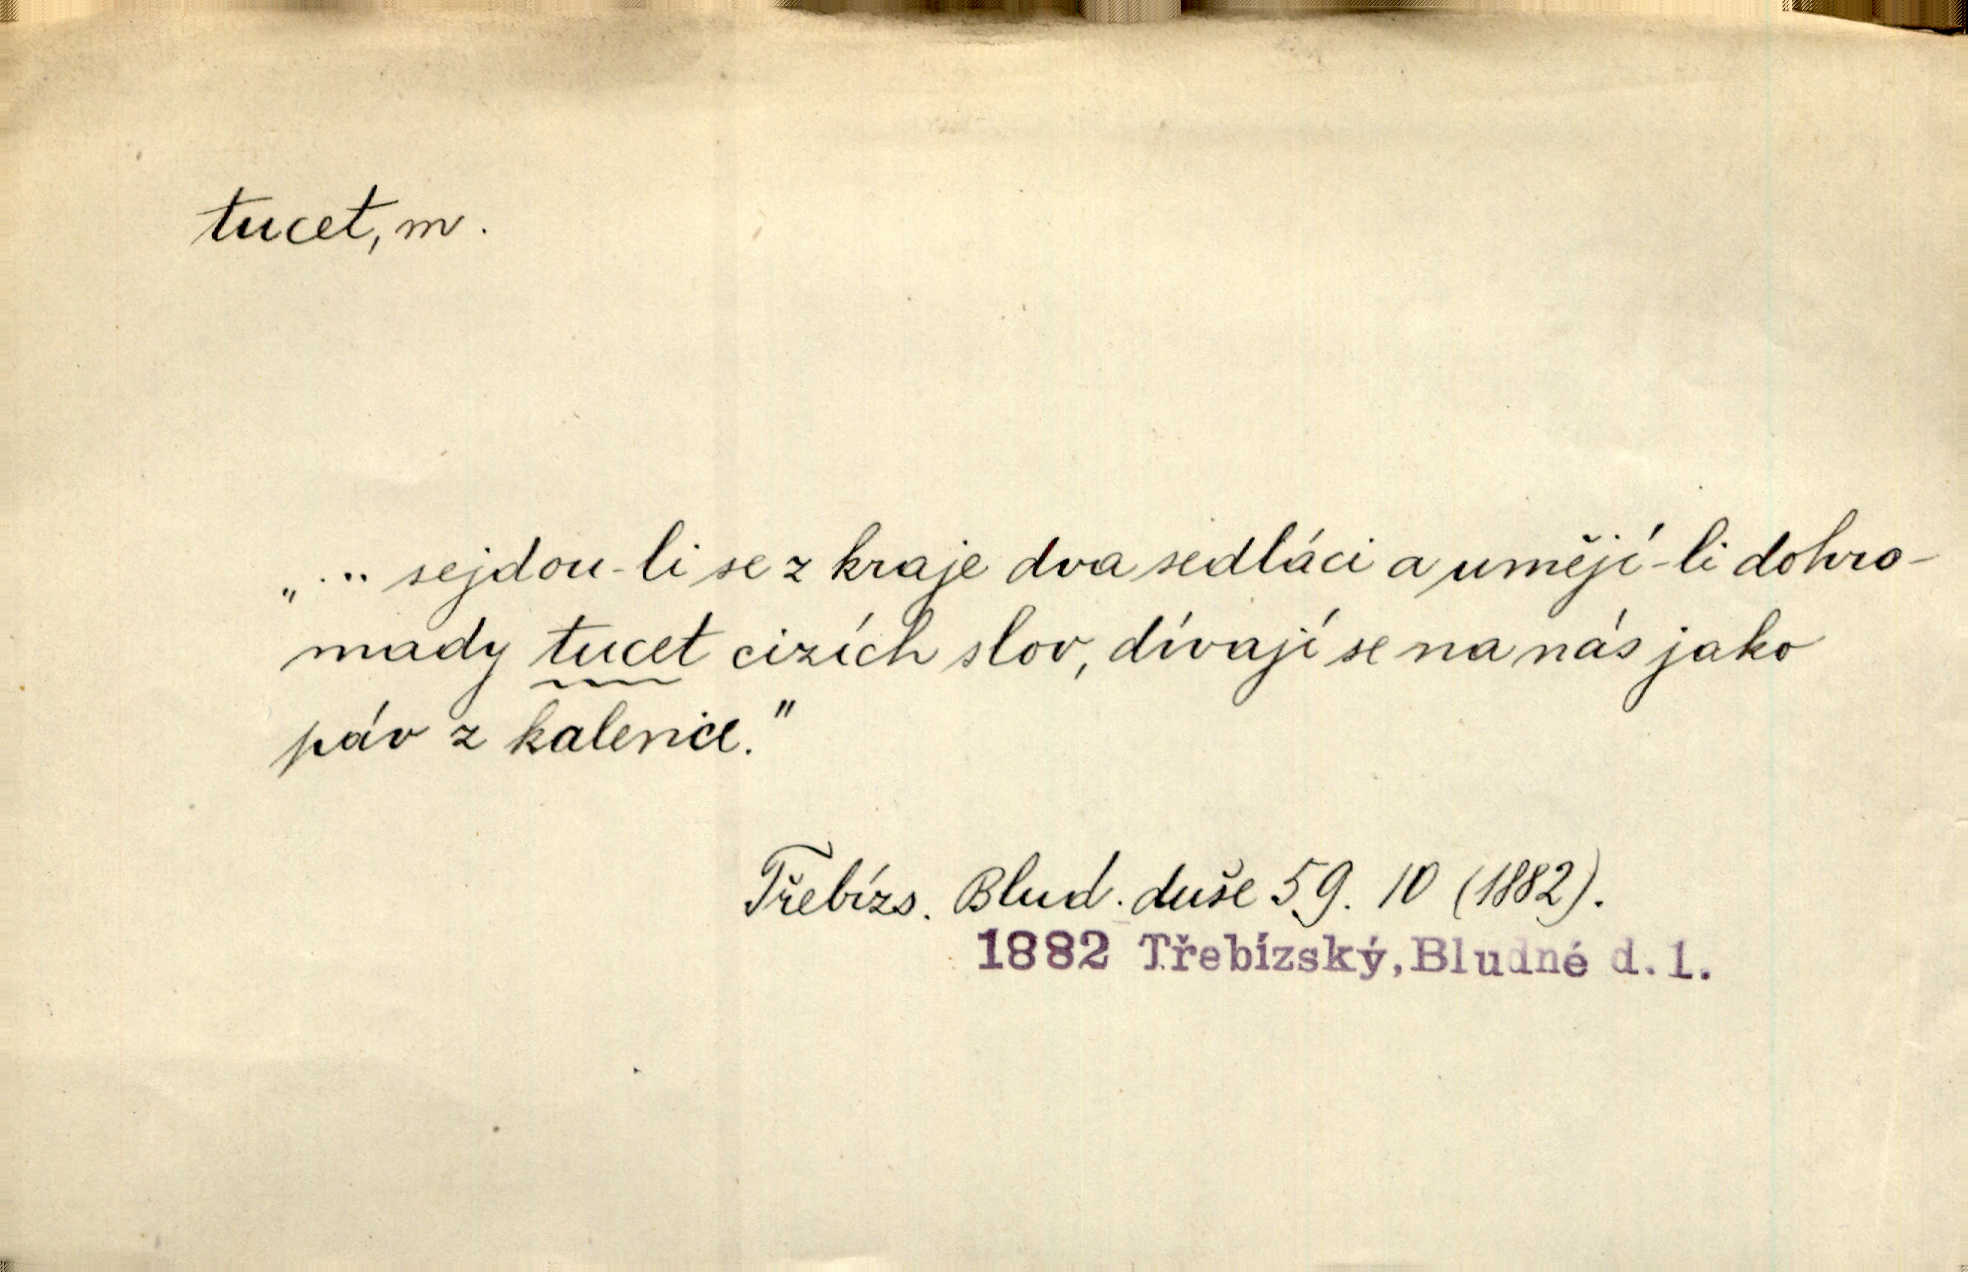 tucet, m.
„... sejdou-li se z kraje dva sedláci a umějí-li dohro-
mady tucet cizích slov, dívají se na nás jako
páv z kalenice."
Třebízs. Blud. duše 59. 10 (1882).
1882 Třebízský, Bludné d.1.